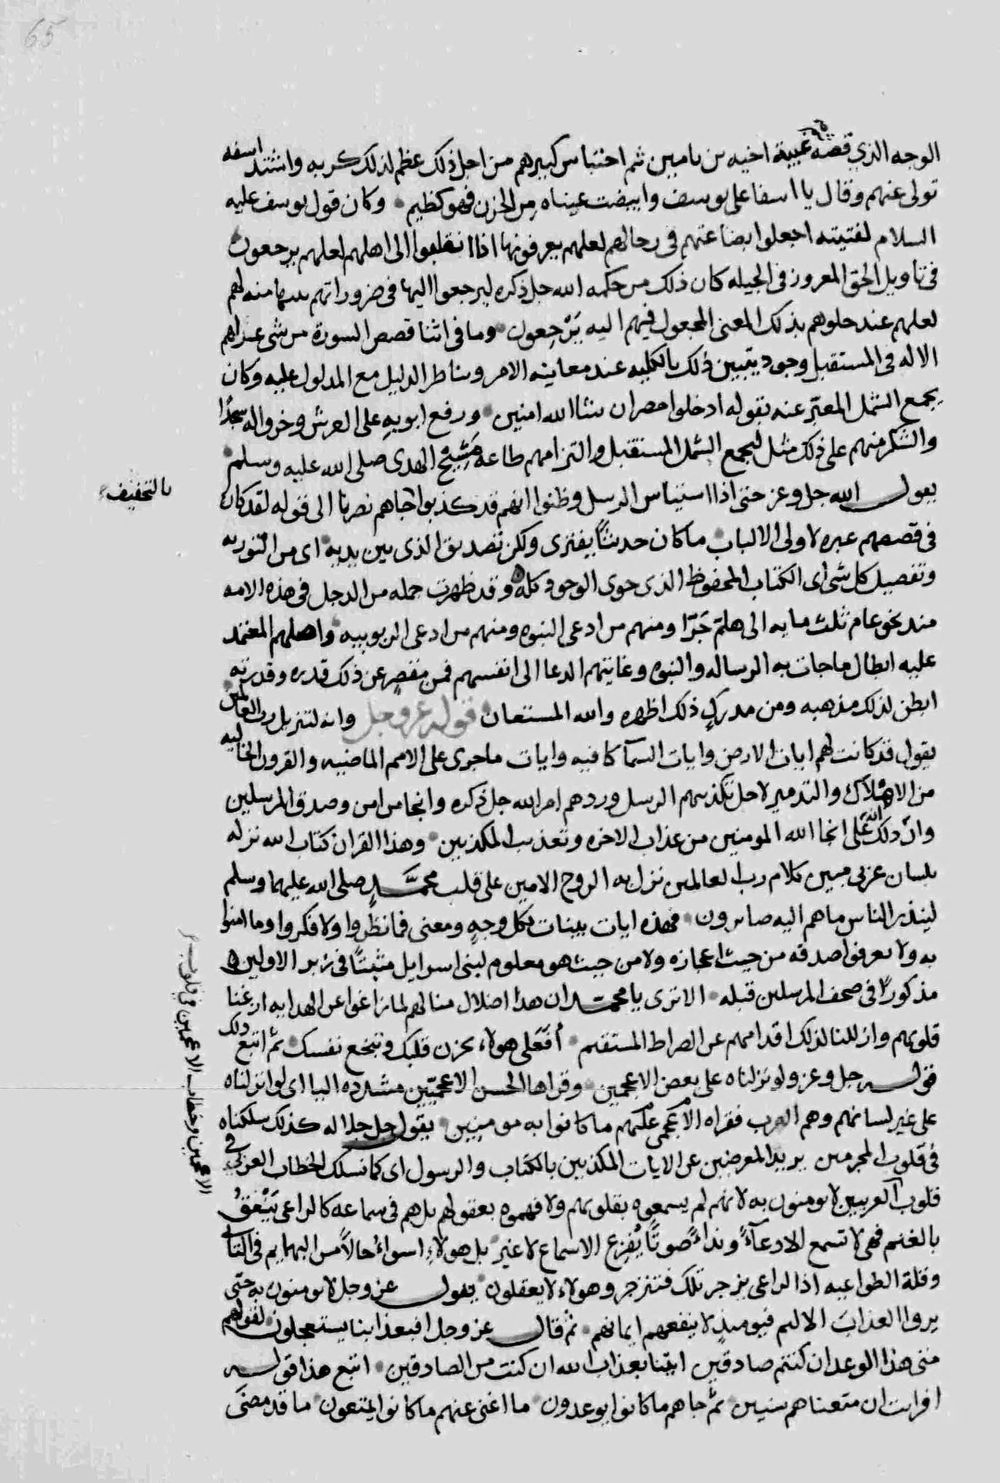 65
الوجه الذي قصه غيبة اخيه بن يامين ثم احتباس كبيرهم من اجل ذلك عظم لذلك كربه واشتد اسفه
تولى عنهم وقال يا اسفا على يوسف وابيضت عيناه من الحزن فهو كظيم وكان قول يوسف عليه
السلام لفتيته اجعلوا بضاعتهم في رحالهم لعلهم يعرفونها اذا انقلبوا الى اهلهم لعلهم يرجعون
في تاويل الحق في الجبله كان ذلك من حكمه الله جل ذكره ليرجعوا اليها في ضروراتهم منه لهم
لعلهم عند بذلك المعنى المجعول فيهم اليه يَرْجِعون وما في اثنا قصص السورة من شى
الا له في المستقبل وجود يتبين ذلك بالكليه عند معاينه الامر الدليل مع المدلول عليه وكان
يجمع الشمل المعبر عنه بقوله ادخلوا مصر ان شا الله امنين ورفع ابويه على العرش وخروا له سجدًا
والشكر منهم على ذلك مثل لجمع الشمل المستقبل والتزامهم طاعة الهدى صلى الله عليه وسلم
يقول الله جل وعز حتى اذا استياس الرسل وظنوا انهم قد كذبوا جاهم نصرنا الى قوله لقد كان
بالتخفيف
في قصصهم عبره لاولى الالباب ما كان حديثًا يفترى ولكن تصديق الذى بين يديه اى من التوريه
وتفصيل كل شى اى الكتاب المحفوظ الذى حوى الوجود كله وقد ظهرت جمله من الدجل في هذه الامه
منذ نحو عام ثلث مايه الى هلم جَرّا ومنهم من ادعى النبوه ومنهم من ادعى الربوبيه واصلهم المعتمد
عليه ابطال ما جات به الرساله والنبوه وغايتهم الدعا الى انفسهم فمن مقصر عن ذلك قدره وقدرته
ابطن لذلك مذهبه ومن مدرك ذلك اظهره والله المستعان قوله عز وجل وانه لتنزيل رب العالمين
يقول قد كانت لهم ايات الارض وايات السما كافيه وايات ما جرى على الامم الماضيه والقرون الخاليه
من الاهلاك والتدمير لاجل تكذيبهم الرسل وردهم امر الله جل ذكره وانجا من امن وصدق المرسلين
وان ذلك على انجا الله المومنين من عذاب الاخره وتعذيب المكذبين وهذا القران كتاب الله نزله
بلسان عربى مبين كلام رب العالمين نزل به الروح الامين على قلب محمَّد صلى الله عليهما وسلم
لينذر الناس ما هم اليه صايرون فهذه ايات بينات بكل وجهٍ ومعنى فما نظروا ولا فكروا وما امنوا
به ولا عرفوا صدقه من حيث اعجازه ولا من حيث هو معلوم لبنى اسرايل مثبتًا في زبر الاولين
مذكورًا في صحف المرسلين قبله الا ترى يا محمد ان هذا اضلال منا لهم لما زاغوا عن الهدايه ازغنا
قلوبهم وازللنا لذلك اقدامهم عن الصراط المستقيم أفعلى هولاء يحزن قلبك وتبخع نفسك ثم اتبع ذلك
قوله جل وعز ولو نزلناه على بعض الاعجمين وقراها الحسن الاعجميّين مشدده اليا اى لو انزلناه
على غير لسانهم وهم العرب فقراه الاعجمى عليهم ما كانوا به مومنين يقول جل جلاله كذلك سلكناه
في قلوب المجرمين يريد المعرضين عن الايات المكذبين بالكتاب والرسول اى كما نسلك الخطاب العربى في
الاعجمين وخطاب الاعجمين في قلوب
قلوب العربيين لا يومنون به لانهم لم يسمعوه بقلوبهم ولا فهموه بعقولهم بل هم في سماعه كالراعى يَنْعِقُ
بالغنم فهى لا تسمع الا دعآءً ونداءً صوتًا يُقْرِع الاسماع لا غير بل هولاء اسواءُ حالًا من البهايم في
وقلة الطواعيه اذ الراعى يزجر تلك فتنزجر وهولاء لا يعقلون يقول عز وجل لا يومنون به حتى
يروا العذاب الاليم فيوميذٍ لا ينفعهم ايمانهم ثم قال عز وجل افبعذابنا يستعجلون لقولهم
متى هذا الوعد ان كنتم صادقين ايتنا بعذاب الله ان كنت من الصادقين اتبع هذا قوله
افرايت ان متعناهم سنين ثم جاهم ما كانوا يوعدون ما اغنى عنهم ما كانوا يمتعون ما قد مضَى